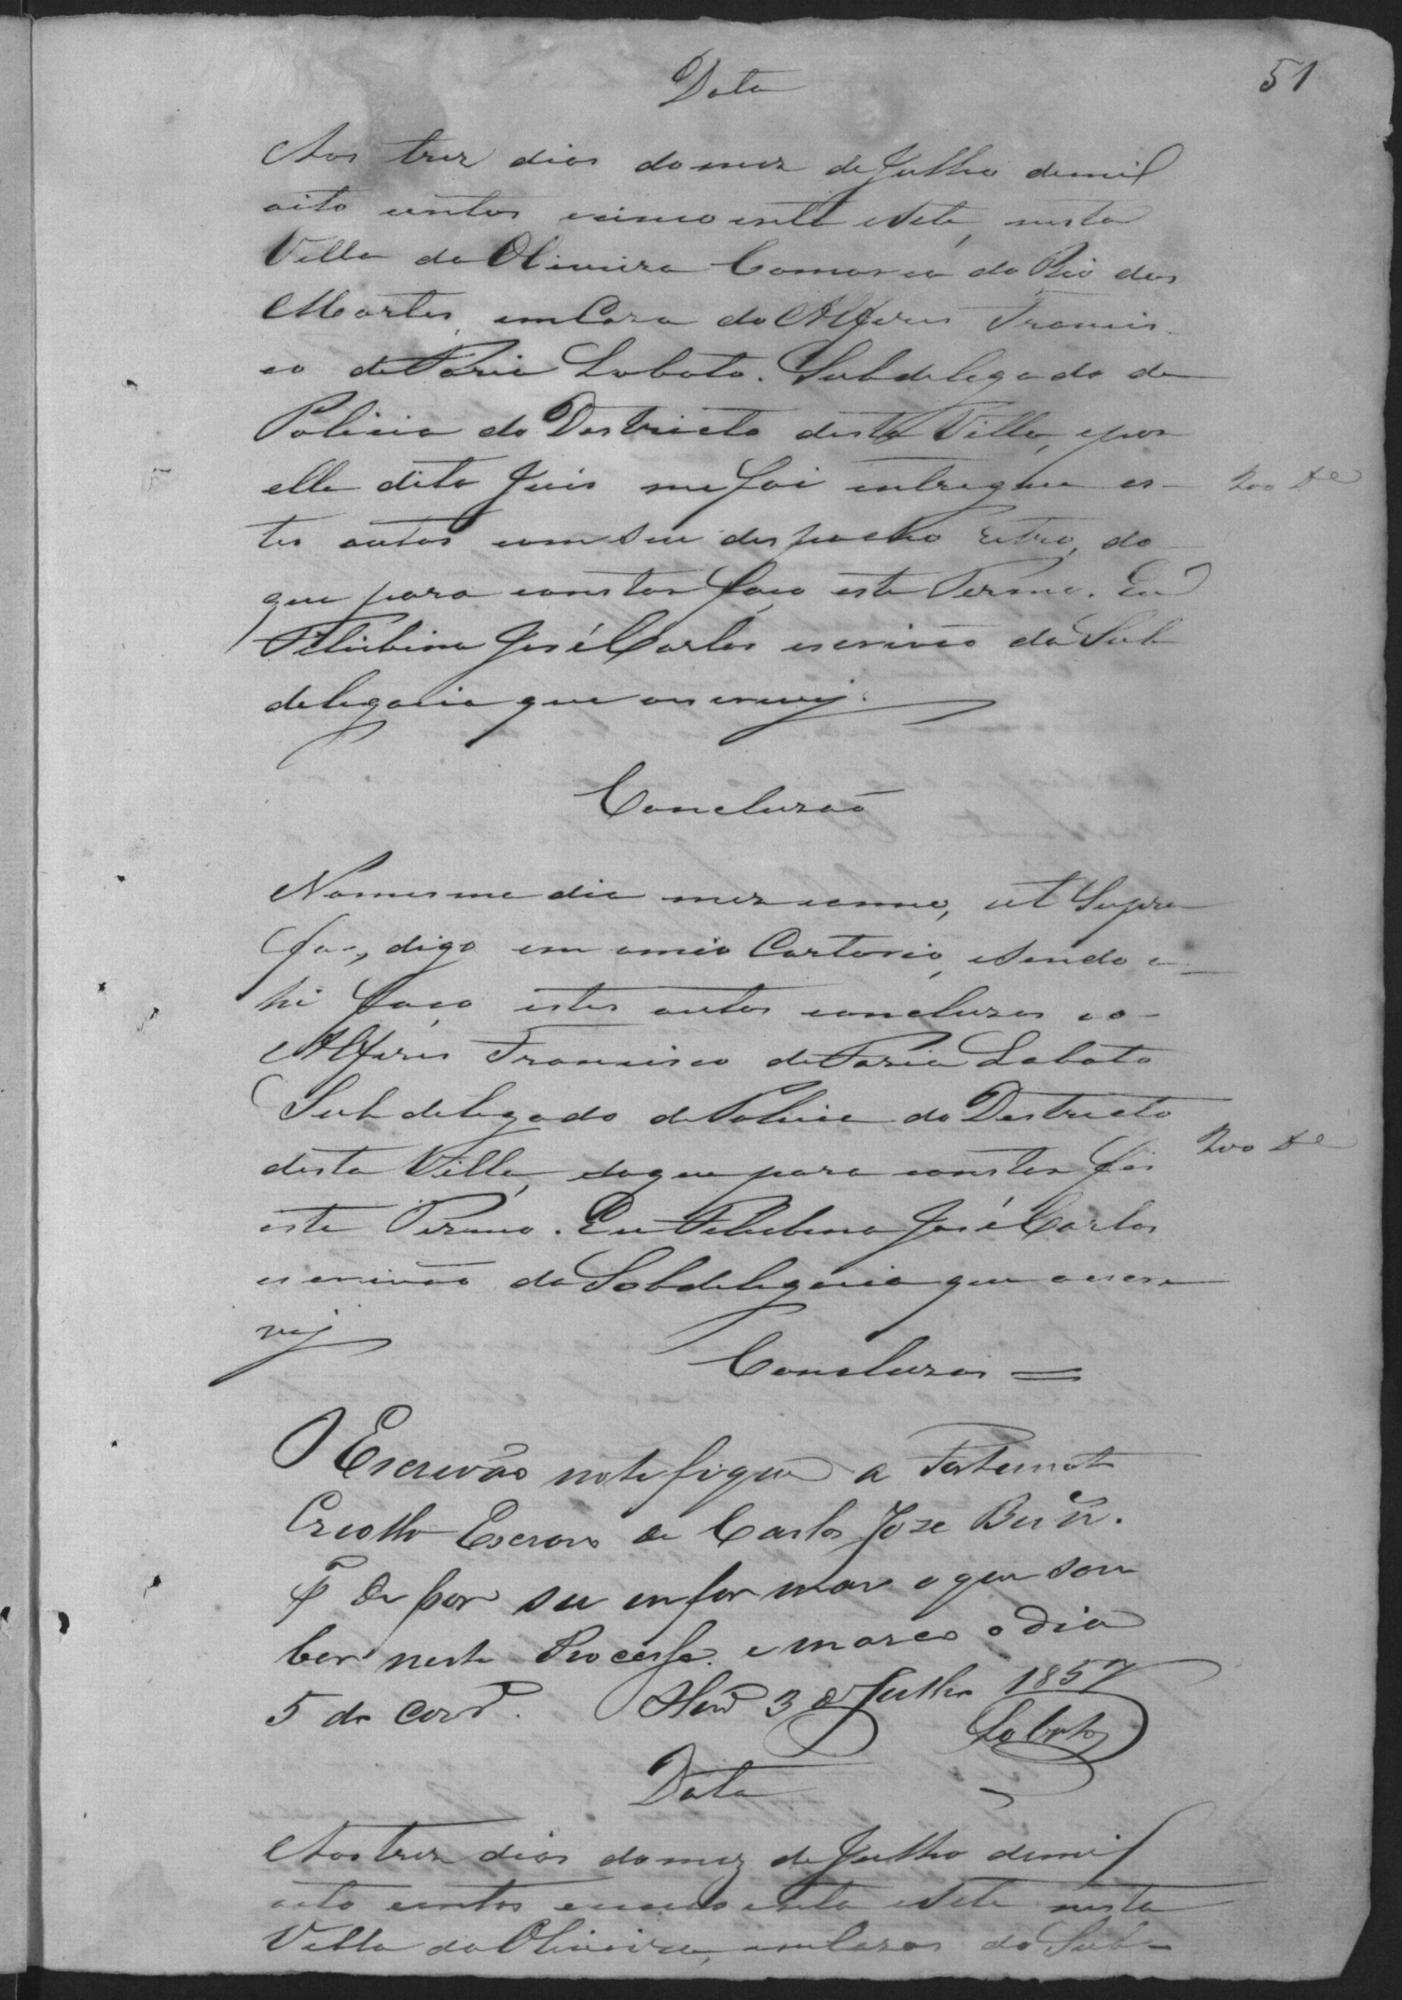 51
Data
Aos trez dias do mez de Julho de mil
oito centos e cincoenta e Sete, nesta
Villa da Oliveira Comarca do Rio das
Mortes, em Caza do Alferes Francis-
co de Paria Lobato. Subdelegado de
Policia do Destricto desta Villa, e por
elle dito Juis me foi entregue es-
tes autos com seu despacho retro, do
que para constar faço este Termo. Eu
Felisbino José Carlos escrivão da Sub
delegacia que o escrevj.
Concluzaõ
No mesmo dia mez e anno, ut Supra
digo em o meio Cartorio, e sendo a-
hi faço estes autos concluzos ao
Alferes Francisco de Faria Lobato
Subdelegado de Policia do Destricto
desta Villa, do que para constar fis
este Termo. Eu Felisbino José Carlos
escrivão da Sobdelegacia que o escre
vj
Concluzos =
O Escrivão notefique a Fortunato
Creollo Escravo de Carlos Joze
de por seu enformar o que sou
ber neste Processo. e marco o Dia
5 do corr.e 3 de Julho 1857
Lobato
Data
Aos trez dias do mez de Julho de mil
oito centos e cincoenta e Sete nesta
Villa da Oliveira, em Cazas do Sub-